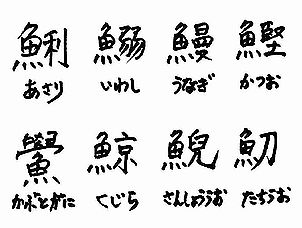 鯏 鰯 鰻 鰹
あさり いわし うなぎ かつお
鱟 鯨 鯢 魛
かぶとがに くじら さんしょううお たちうお